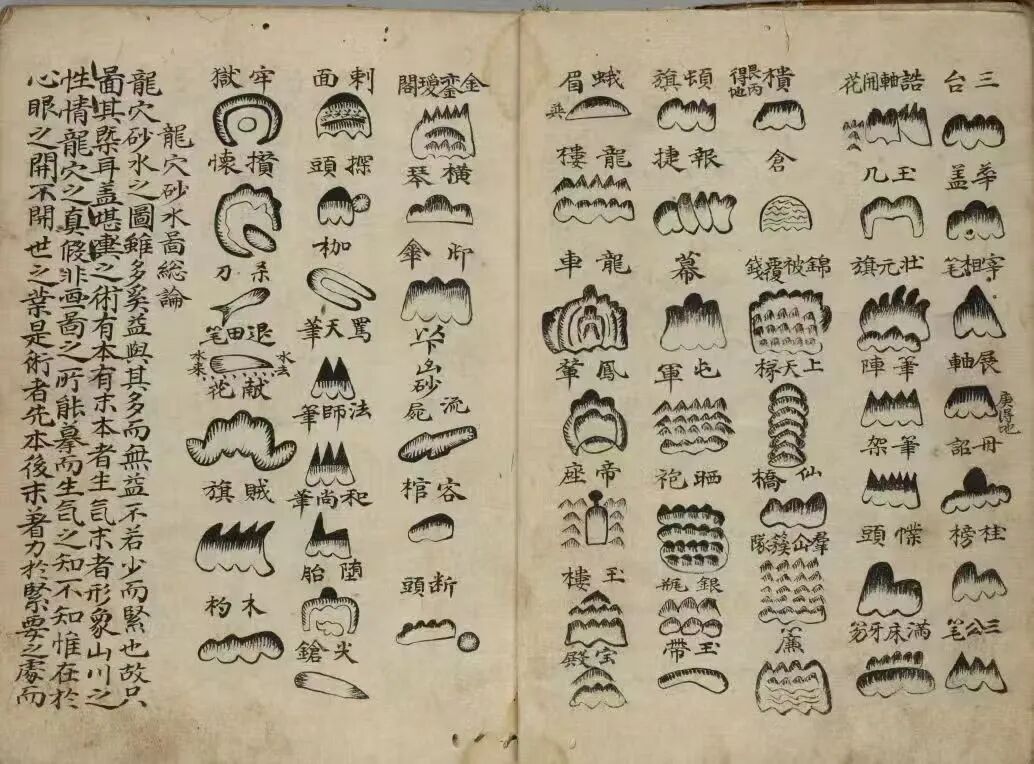 三台
華盖
宰相笔
展軸
庚得地
桂榜
三公笔
誥軸開花
玉几
壮元旗
筆陣
筆架
幞頭
滿床牙笏
樻
艮丙得地
倉
錦被覆錢
上天梯
仙橋
羣仙簇隊
簾
頓旗
報捷
幕
屯軍
晒袍
銀瓶
玉帶
蛾眉
龍樓
龍車
鳳輦
帝座
玉樓
宝殿
金鑾瑷閣
横琴
卸傘
以下凶砂
流屍
客棺
断頭
刺面
探頭
枷
罵天筆
法師筆
和尚筆
堕胎
尖鎗
牢獄
攢懐
杀刀
退田笔
水去
水来
献花
賊旗
木杓
龍穴砂水啚総論
龍穴砂水之圖雖多奚益與其多而無益不若少而緊也故只
啚其槩耳盖堪輿之術有本有末本者生気末者形象山川之
性情龍穴之真假非画啚之所能摹而生気之知不知惟在於
心眼之開不開世之業是術者先本後末着力於緊要之處而